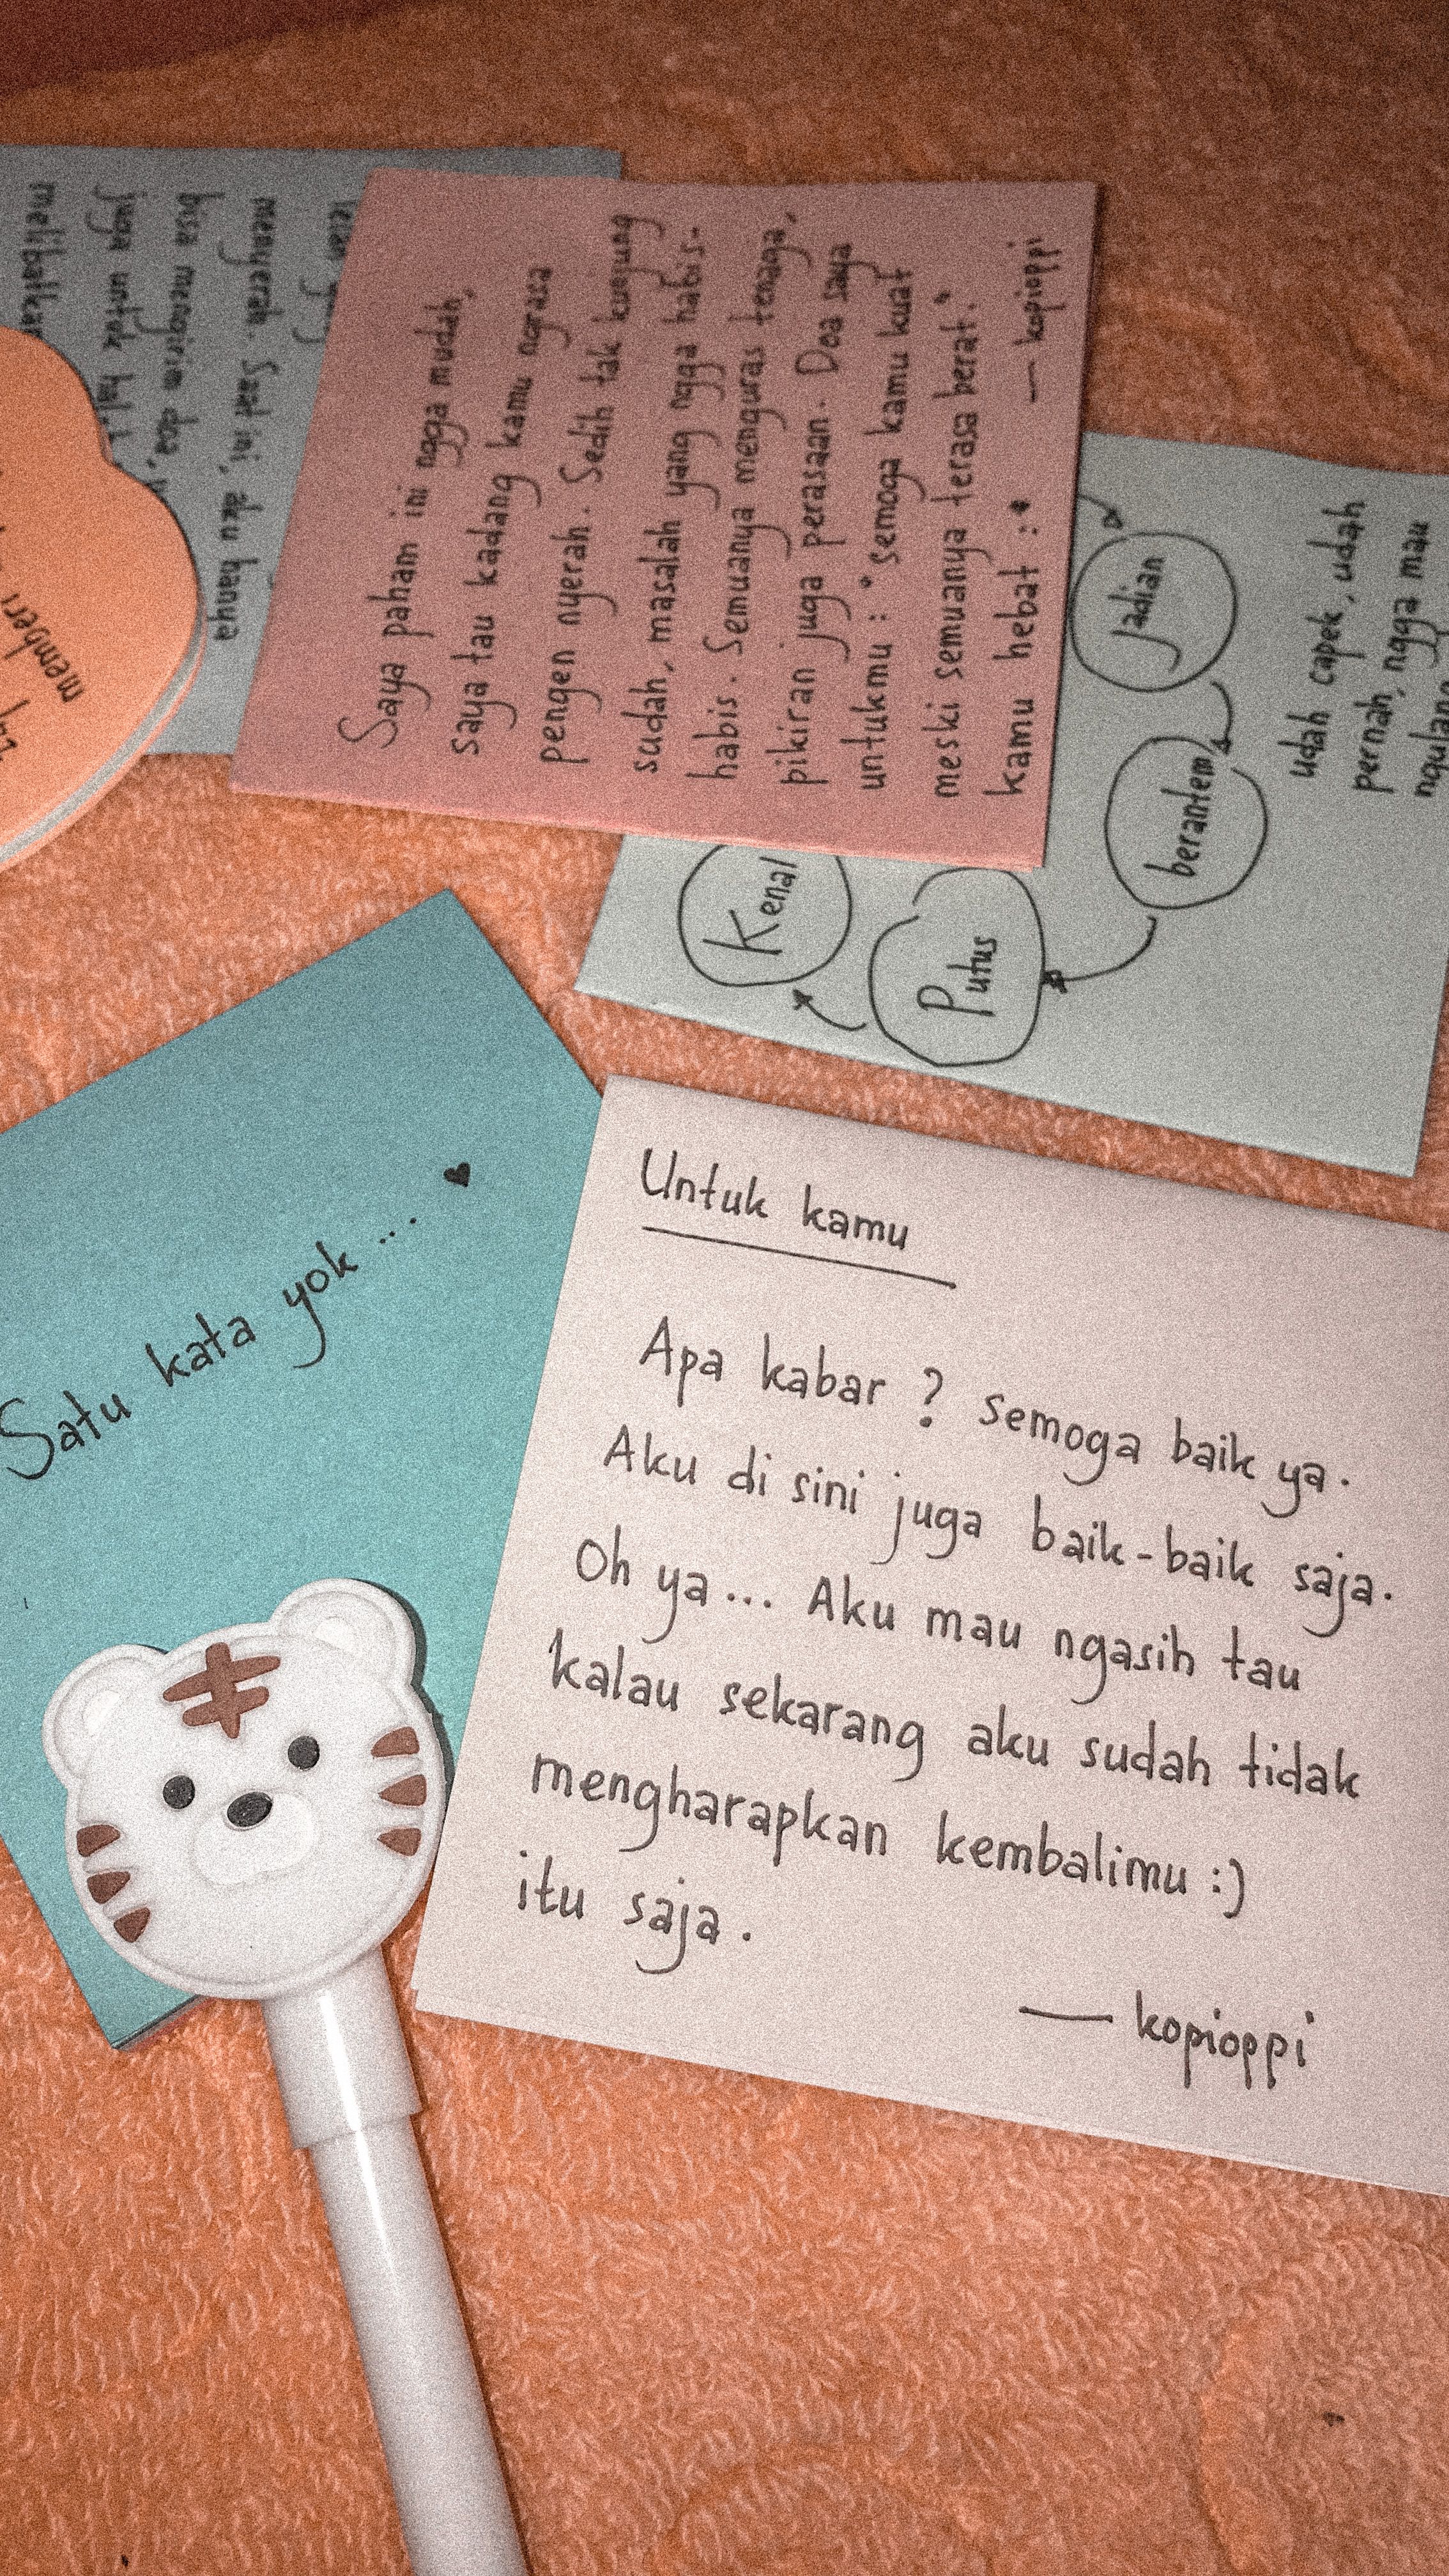 melibatkan
juga untuk
bisa mengirim doa,
menyerah. Saat ini, aku hanya
memberi
Saya paham ini ngga mudah,
saya tau kadang kamu ngrasa
pengen nyerah. Sedih tak kunjung
sudah, masalah yang ngga habis-
habis. Semuanya menguras tenaga,
pikiran juga perasaan. Doa saya
untukmu : "semoga kamu kuat
meski semuanya terasa berat."
kamu hebat :*
— kopioppi
Jadian
berantem
Putus
Kenal
udah capek, udah
pernah, ngga mau
ngulang
Satu kata yok... ♥
Untuk kamu
Apa kabar ? semoga baik ya.
Aku di sini juga baik-baik saja.
Oh ya... Aku mau ngasih tau
kalau sekarang aku sudah tidak
mengharapkan kembalimu :)
itu saja.
— kopioppi